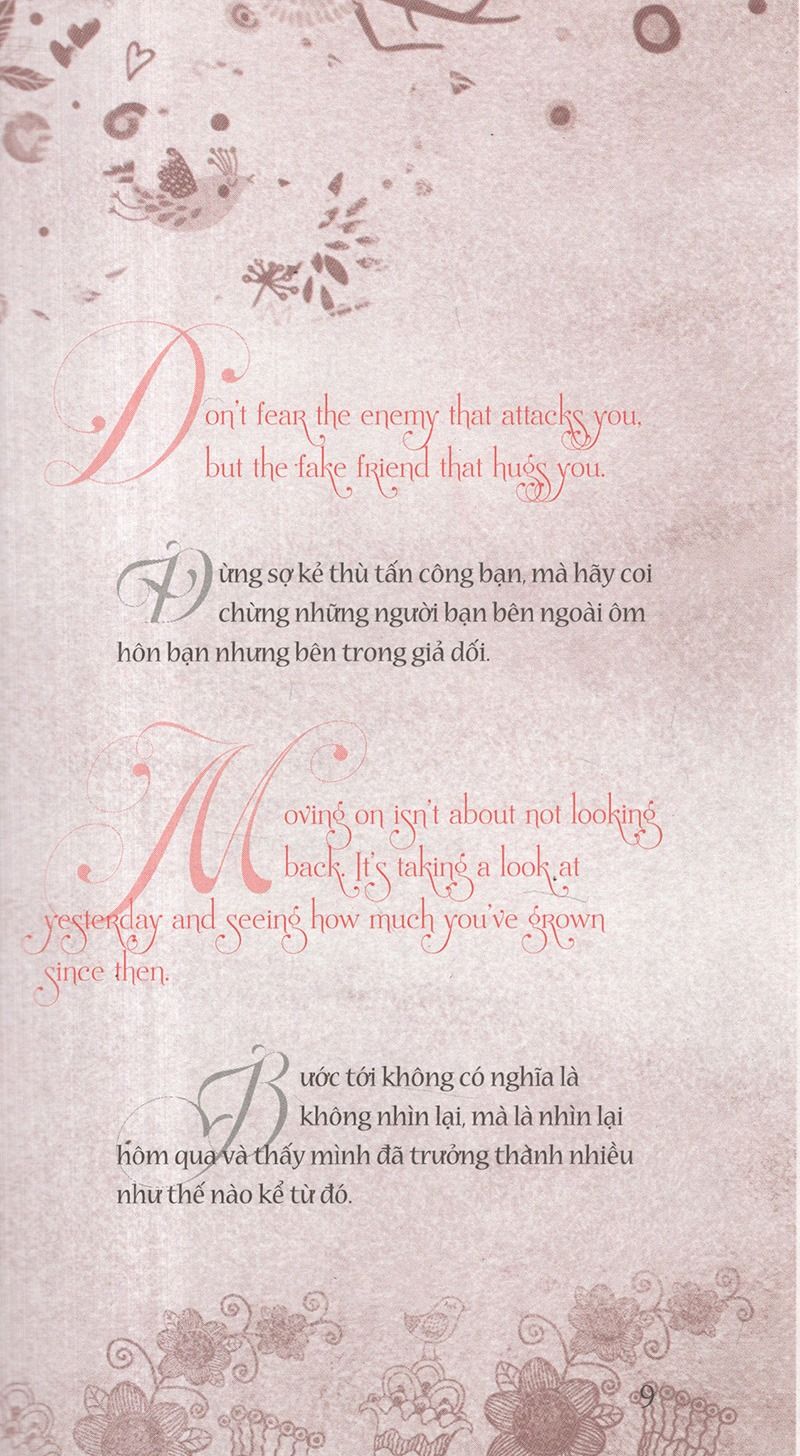 Don't fear the enemy that attacks you,
but the fake friend that hugs you.
Đừng sợ kẻ thù tấn công bạn, mà hãy coi
chừng những người bạn bên ngoài ôm
hôn bạn nhưng bên trong giả dối.
Moving on isn't about not looking
back. It's taking a look at
yesterday and seeing how much you've grown
since then.
Bước tới không có nghĩa là
không nhìn lại, mà là nhìn lại
hôm qua và thấy mình đã trưởng thành nhiều
như thế nào kể từ đó.
9